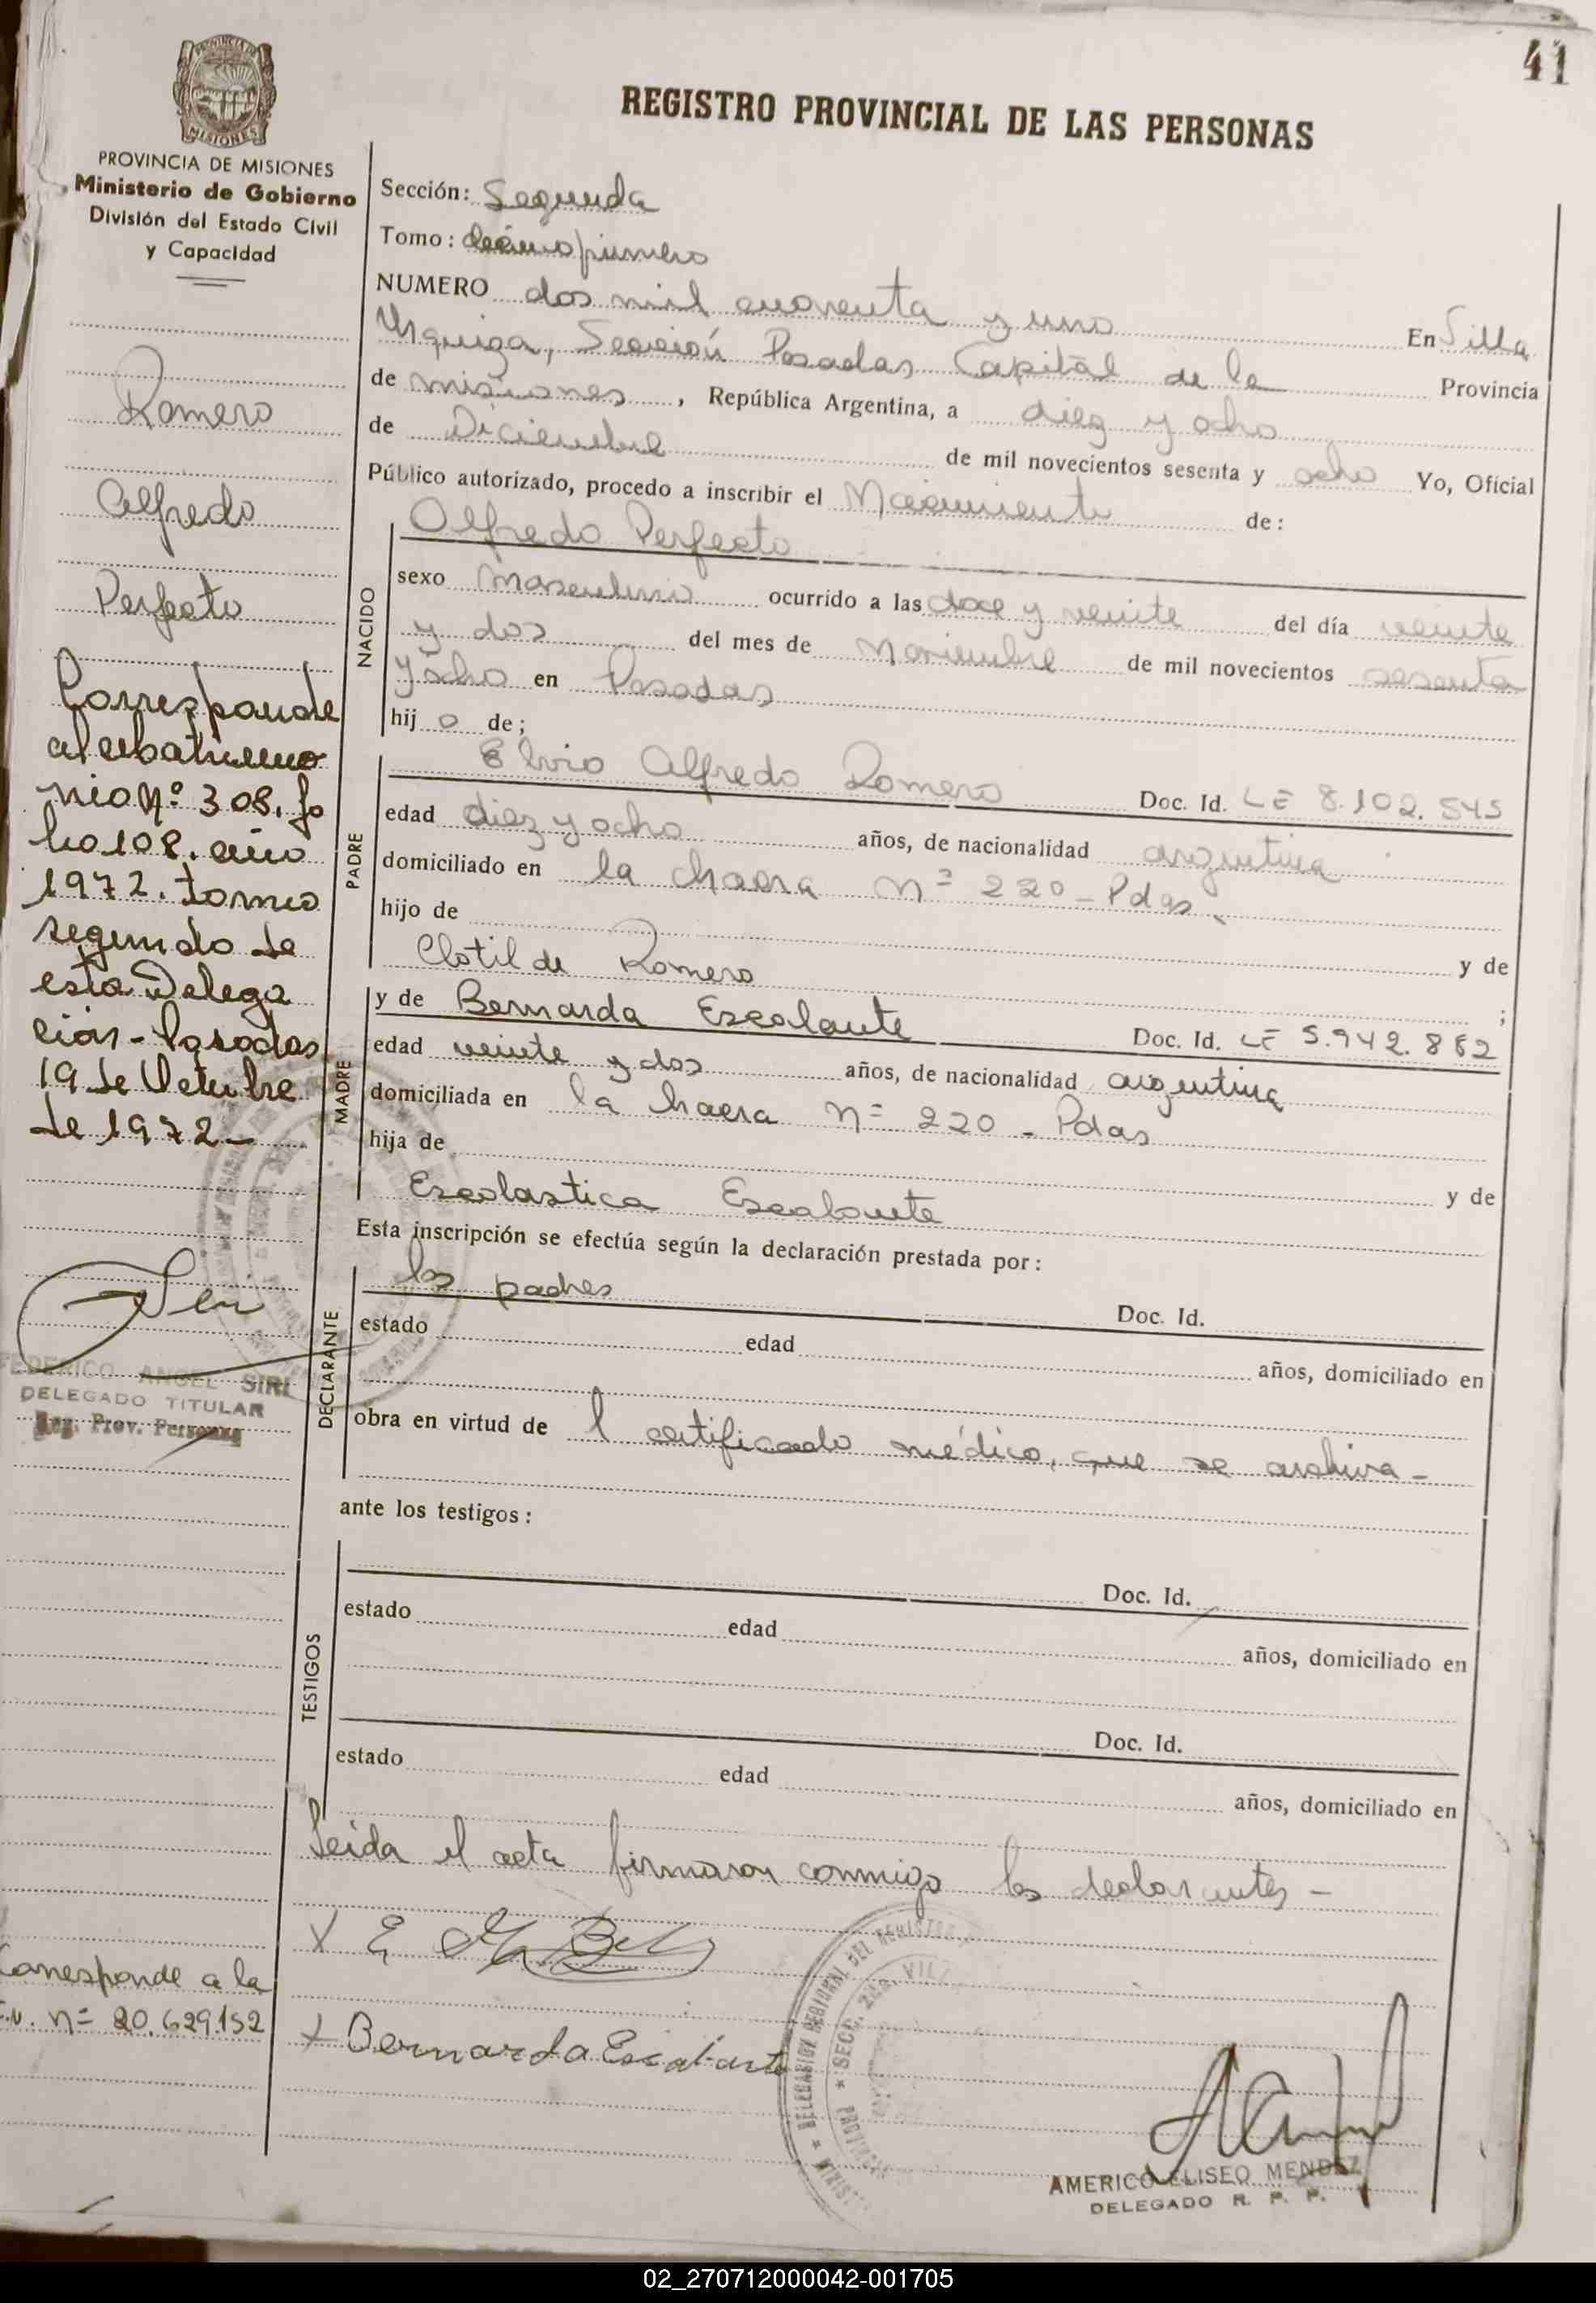 41
PROVINCIA DE MISIONES
Ministerio de Gobierno
División del Estado Civil
y Capacidad
REGISTRO PROVINCIAL DE LAS PERSONAS
Sección: Segunda
Tomo: décimo primero
NUMERO dos mil cuarenta y uno En Villa
Urquiza, Sección Posadas Capital de la Provincia
de misiones, República Argentina, a diez y ocho
de Diciembre de mil novecientos sesenta y ocho Yo, Oficial
Público autorizado, procedo a inscribir el Nacimiento de:
NACIDO
Alfredo Perfecto
sexo masculino ocurrido a las doce y veinte del día veinte
y dos del mes de Noviembre de mil novecientos sesenta
y ocho en Posadas
hij o de;
PADRE
Elvio Alfredo Romero Doc. Id. LE 8.102.545
edad diez y ocho años, de nacionalidad argentina
domiciliado en la chacra Nº 220 - Pdas.
hijo de y de
Clotilde Romero ;
MADRE
y de Bernarda Escalante Doc. Id. LE 5.942.862
edad veinte y dos años, de nacionalidad argentina
domiciliada en la chacra Nº 220 - Pdas
hija de y de
Escolastica Escalante
Esta inscripción se efectúa según la declaración prestada por:
DECLARANTE
los padres Doc. Id.
estado edad años, domiciliado en
obra en virtud de l certificado médico, que se archiva -
ante los testigos:
TESTIGOS
Doc. Id.
estado edad años, domiciliado en
Doc. Id.
estado edad años, domiciliado en
Leida el acta firmaron conmigo los declarantes -
X Bernarda Escalante
AMERICO ELISEO MENDEZ
DELEGADO R. P. P.
Romero
Alfredo
Perfecto
Corresponde
al acta matrimo
nio Nº 308. fo
lio 108. año
1972. tomo
segundo de
esta Delega
ción - Posadas
19 de Octubre
de 1972 -
FEDERICO ANGEL SIRI
DELEGADO TITULAR
Reg. Prov. Personas
Corresponde a la
Nº 20.629.152
02_270712000042-001705